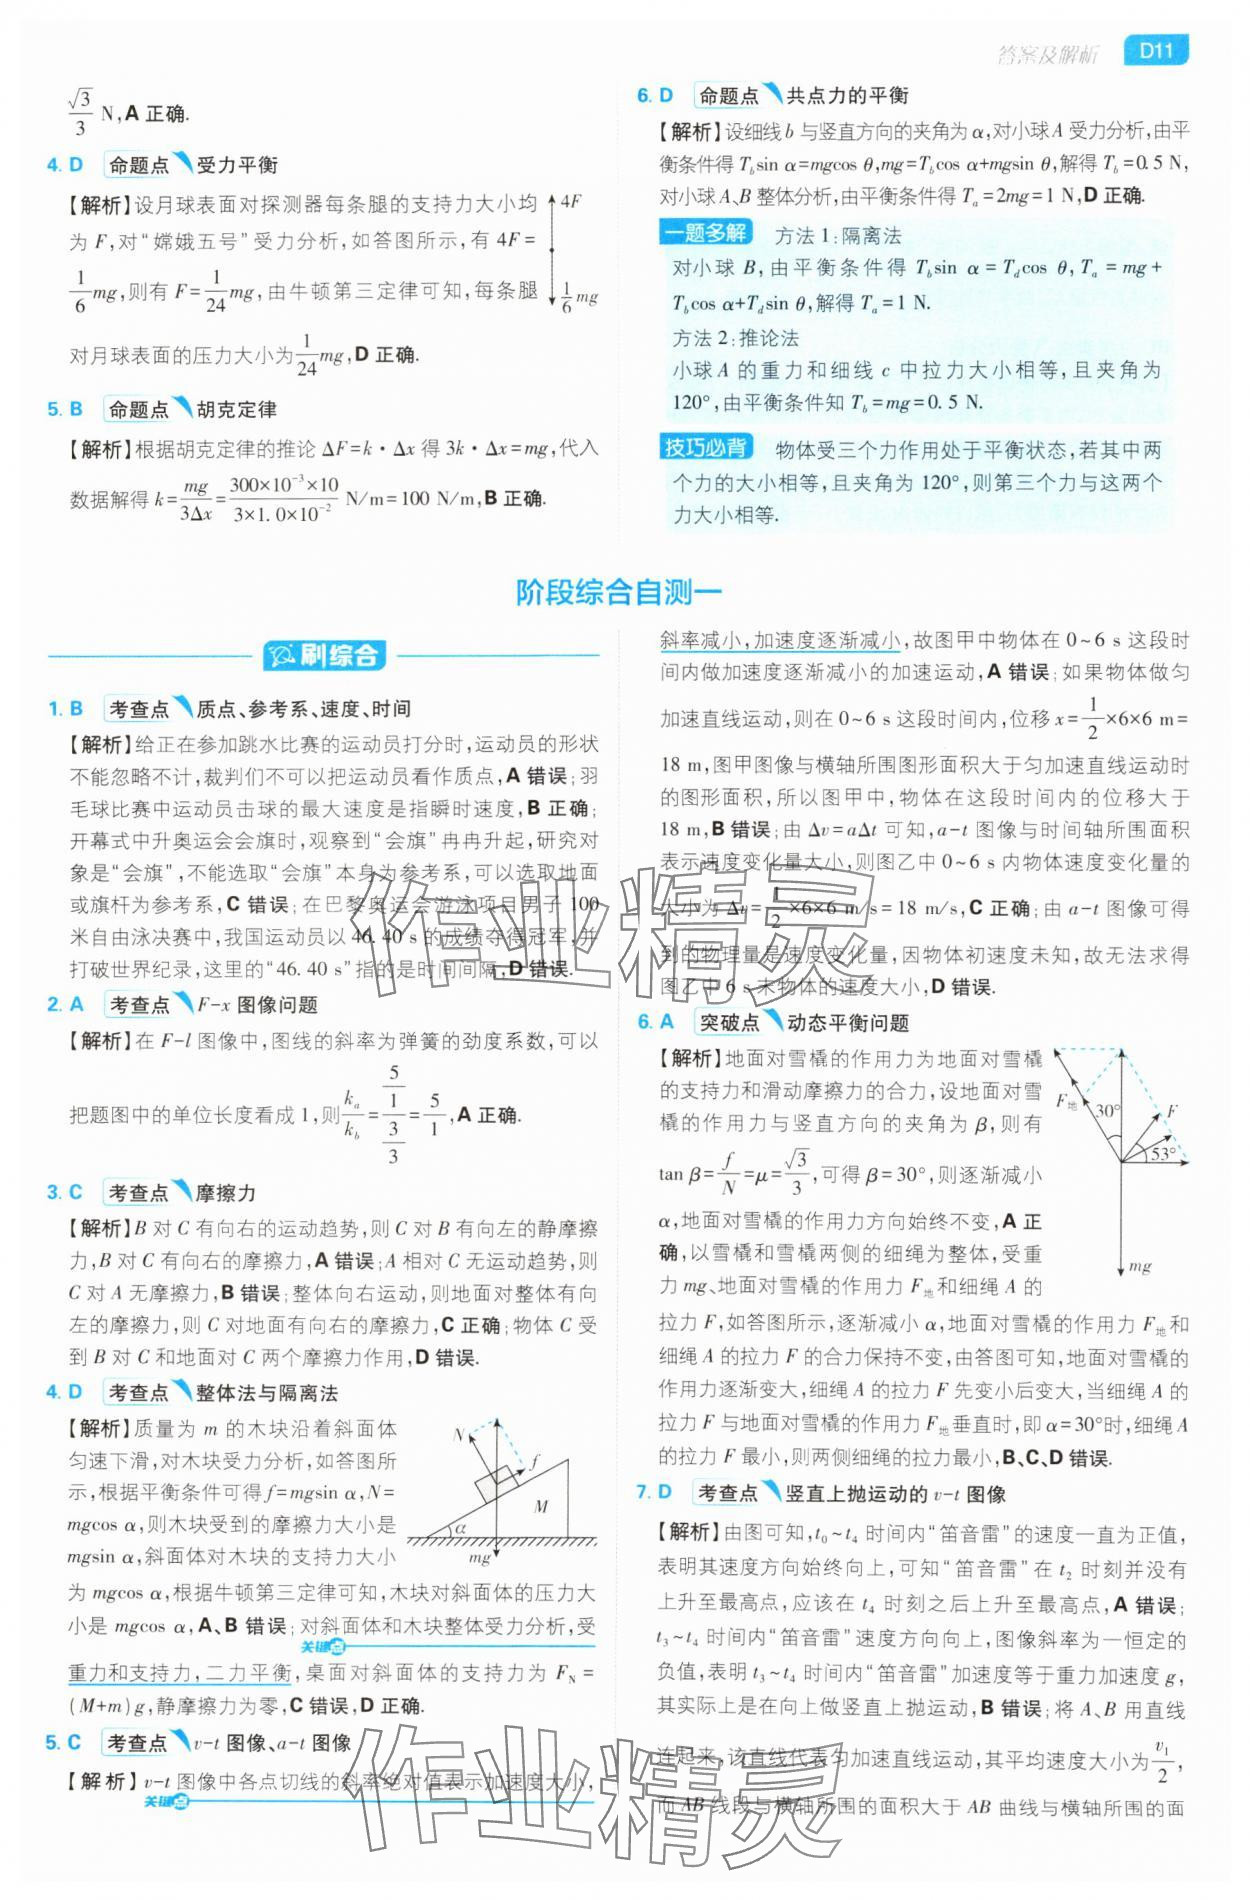 答案及解析 D11
√3/3 N,A 正确.
4. D 命题点 受力平衡
【解析】设月球表面对探测器每条腿的支持力大小均
为 F,对“嫦娥五号”受力分析,如答图所示,有 4F=
1/6 mg,则有 F=1/24 mg,由牛顿第三定律可知,每条腿
对月球表面的压力大小为1/24 mg,D 正确.
4F
1/6 mg
5. B 命题点 胡克定律
【解析】根据胡克定律的推论 ΔF=k·Δx 得 3k·Δx=mg,代入
数据解得 k=mg/3Δx=300×10⁻³×10/3×1.0×10⁻² N/m=100 N/m,B 正确.
6. D 命题点 共点力的平衡
【解析】设细线 b 与竖直方向的夹角为 α,对小球 A 受力分析,由平
衡条件得 T_b sin α=mgcos θ,mg=T_b cos α+mgsin θ,解得 T_b=0.5 N,
对小球 A、B 整体分析,由平衡条件得 T_a=2mg=1 N,D 正确.
一题多解 方法 1:隔离法
对小球 B,由平衡条件得 T_b sin α=T_d cos θ,T_a=mg+
T_b cos α+T_d sin θ,解得 T_a=1 N.
方法 2:推论法
小球 A 的重力和细线 c 中拉力大小相等,且夹角为
120°,由平衡条件知 T_b=mg=0.5 N.
技巧必背 物体受三个力作用处于平衡状态,若其中两
个力的大小相等,且夹角为 120°,则第三个力与这两个
力大小相等.
阶段综合自测一
刷综合
1. B 考查点 质点、参考系、速度、时间
【解析】给正在参加跳水比赛的运动员打分时,运动员的形状
不能忽略不计,裁判们不可以把运动员看作质点,A 错误;羽
毛球比赛中运动员击球的最大速度是指瞬时速度,B 正确;
开幕式中升奥运会会旗时,观察到“会旗”冉冉升起,研究对
象是“会旗”,不能选取“会旗”本身为参考系,可以选取地面
或旗杆为参考系,C 错误;在巴黎奥运会游泳项目男子 100
米自由泳决赛中,我国运动员以 46.40 s 的成绩夺得冠军,并
打破世界纪录,这里的“46.40 s”指的是时间间隔,D 错误.
2. A 考查点 F-x 图像问题
【解析】在 F-l 图像中,图线的斜率为弹簧的劲度系数,可以
把题图中的单位长度看成 1,则k_a/k_b=(5/1)/(3/3)=5/1,A 正确.
3. C 考查点 摩擦力
【解析】B 对 C 有向右的运动趋势,则 C 对 B 有向左的静摩擦
力,B 对 C 有向右的摩擦力,A 错误;A 相对 C 无运动趋势,则
C 对 A 无摩擦力,B 错误;整体向右运动,则地面对整体有向
左的摩擦力,则 C 对地面有向右的摩擦力,C 正确;物体 C 受
到 B 对 C 和地面对 C 两个摩擦力作用,D 错误.
4. D 考查点 整体法与隔离法
【解析】质量为 m 的木块沿着斜面体
匀速下滑,对木块受力分析,如答图所
示,根据平衡条件可得 f=mgsin α,N=
mgcos α,则木块受到的摩擦力大小是
mgsin α,斜面体对木块的支持力大小
为 mgcos α,根据牛顿第三定律可知,木块对斜面体的压力大
小是 mgcos α,A、B 错误;对斜面体和木块整体受力分析,受
关键点
重力和支持力,二力平衡,桌面对斜面体的支持力为 F_N=
(M+m)g,静摩擦力为零,C 错误,D 正确.
N
f
M
α
mg
5. C 考查点 v-t 图像、a-t 图像
【解析】v-t 图像中各点切线的斜率绝对值表示加速度大小,
关键点
斜率减小,加速度逐渐减小,故图甲中物体在 0~6 s 这段时
间内做加速度逐渐减小的加速运动,A 错误;如果物体做匀
加速直线运动,则在 0~6 s 这段时间内,位移 x=1/2×6×6 m=
18 m,图甲图像与横轴所围图形面积大于匀加速直线运动时
的图形面积,所以图甲中,物体在这段时间内的位移大于
18 m,B 错误;由 Δv=aΔt 可知,a-t 图像与时间轴所围面积
表示速度变化量大小,则图乙中 0~6 s 内物体速度变化量的
大小为 Δv=1/2×6×6 m/s=18 m/s,C 正确;由 a-t 图像可得
到的物理量是速度变化量,因物体初速度未知,故无法求得
图乙中 6 s 末物体的速度大小,D 错误.
6. A 突破点 动态平衡问题
【解析】地面对雪橇的作用力为地面对雪橇
的支持力和滑动摩擦力的合力,设地面对雪
橇的作用力与竖直方向的夹角为 β,则有
tan β=f/N=μ=√3/3,可得 β=30°,则逐渐减小
α,地面对雪橇的作用力方向始终不变,A 正
确,以雪橇和雪橇两侧的细绳为整体,受重
力 mg、地面对雪橇的作用力 F地和细绳 A 的
拉力 F,如答图所示,逐渐减小 α,地面对雪橇的作用力 F地和
细绳 A 的拉力 F 的合力保持不变,由答图可知,地面对雪橇的
作用力逐渐变大,细绳 A 的拉力 F 先变小后变大,当细绳 A 的
拉力 F 与地面对雪橇的作用力 F地垂直时,即 α=30°时,细绳 A
的拉力 F 最小,则两侧细绳的拉力最小,B、C、D 错误.
F地
30°
F
53°
mg
7. D 考查点 竖直上抛运动的 v-t 图像
【解析】由图可知,t₀~t₄ 时间内“笛音雷”的速度一直为正值,
表明其速度方向始终向上,可知“笛音雷”在 t₂ 时刻并没有
上升至最高点,应该在 t₄ 时刻之后上升至最高点,A 错误;
t₃~t₄ 时间内“笛音雷”速度方向向上,图像斜率为一恒定的
负值,表明 t₃~t₄ 时间内“笛音雷”加速度等于重力加速度 g,
其实际上是在向上做竖直上抛运动,B 错误;将 A、B 用直线
连起来,该直线代表匀加速直线运动,其平均速度大小为v₁/2,
而 AB 线段与横轴所围的面积大于 AB 曲线与横轴所围的面
作业精灵
作业精灵